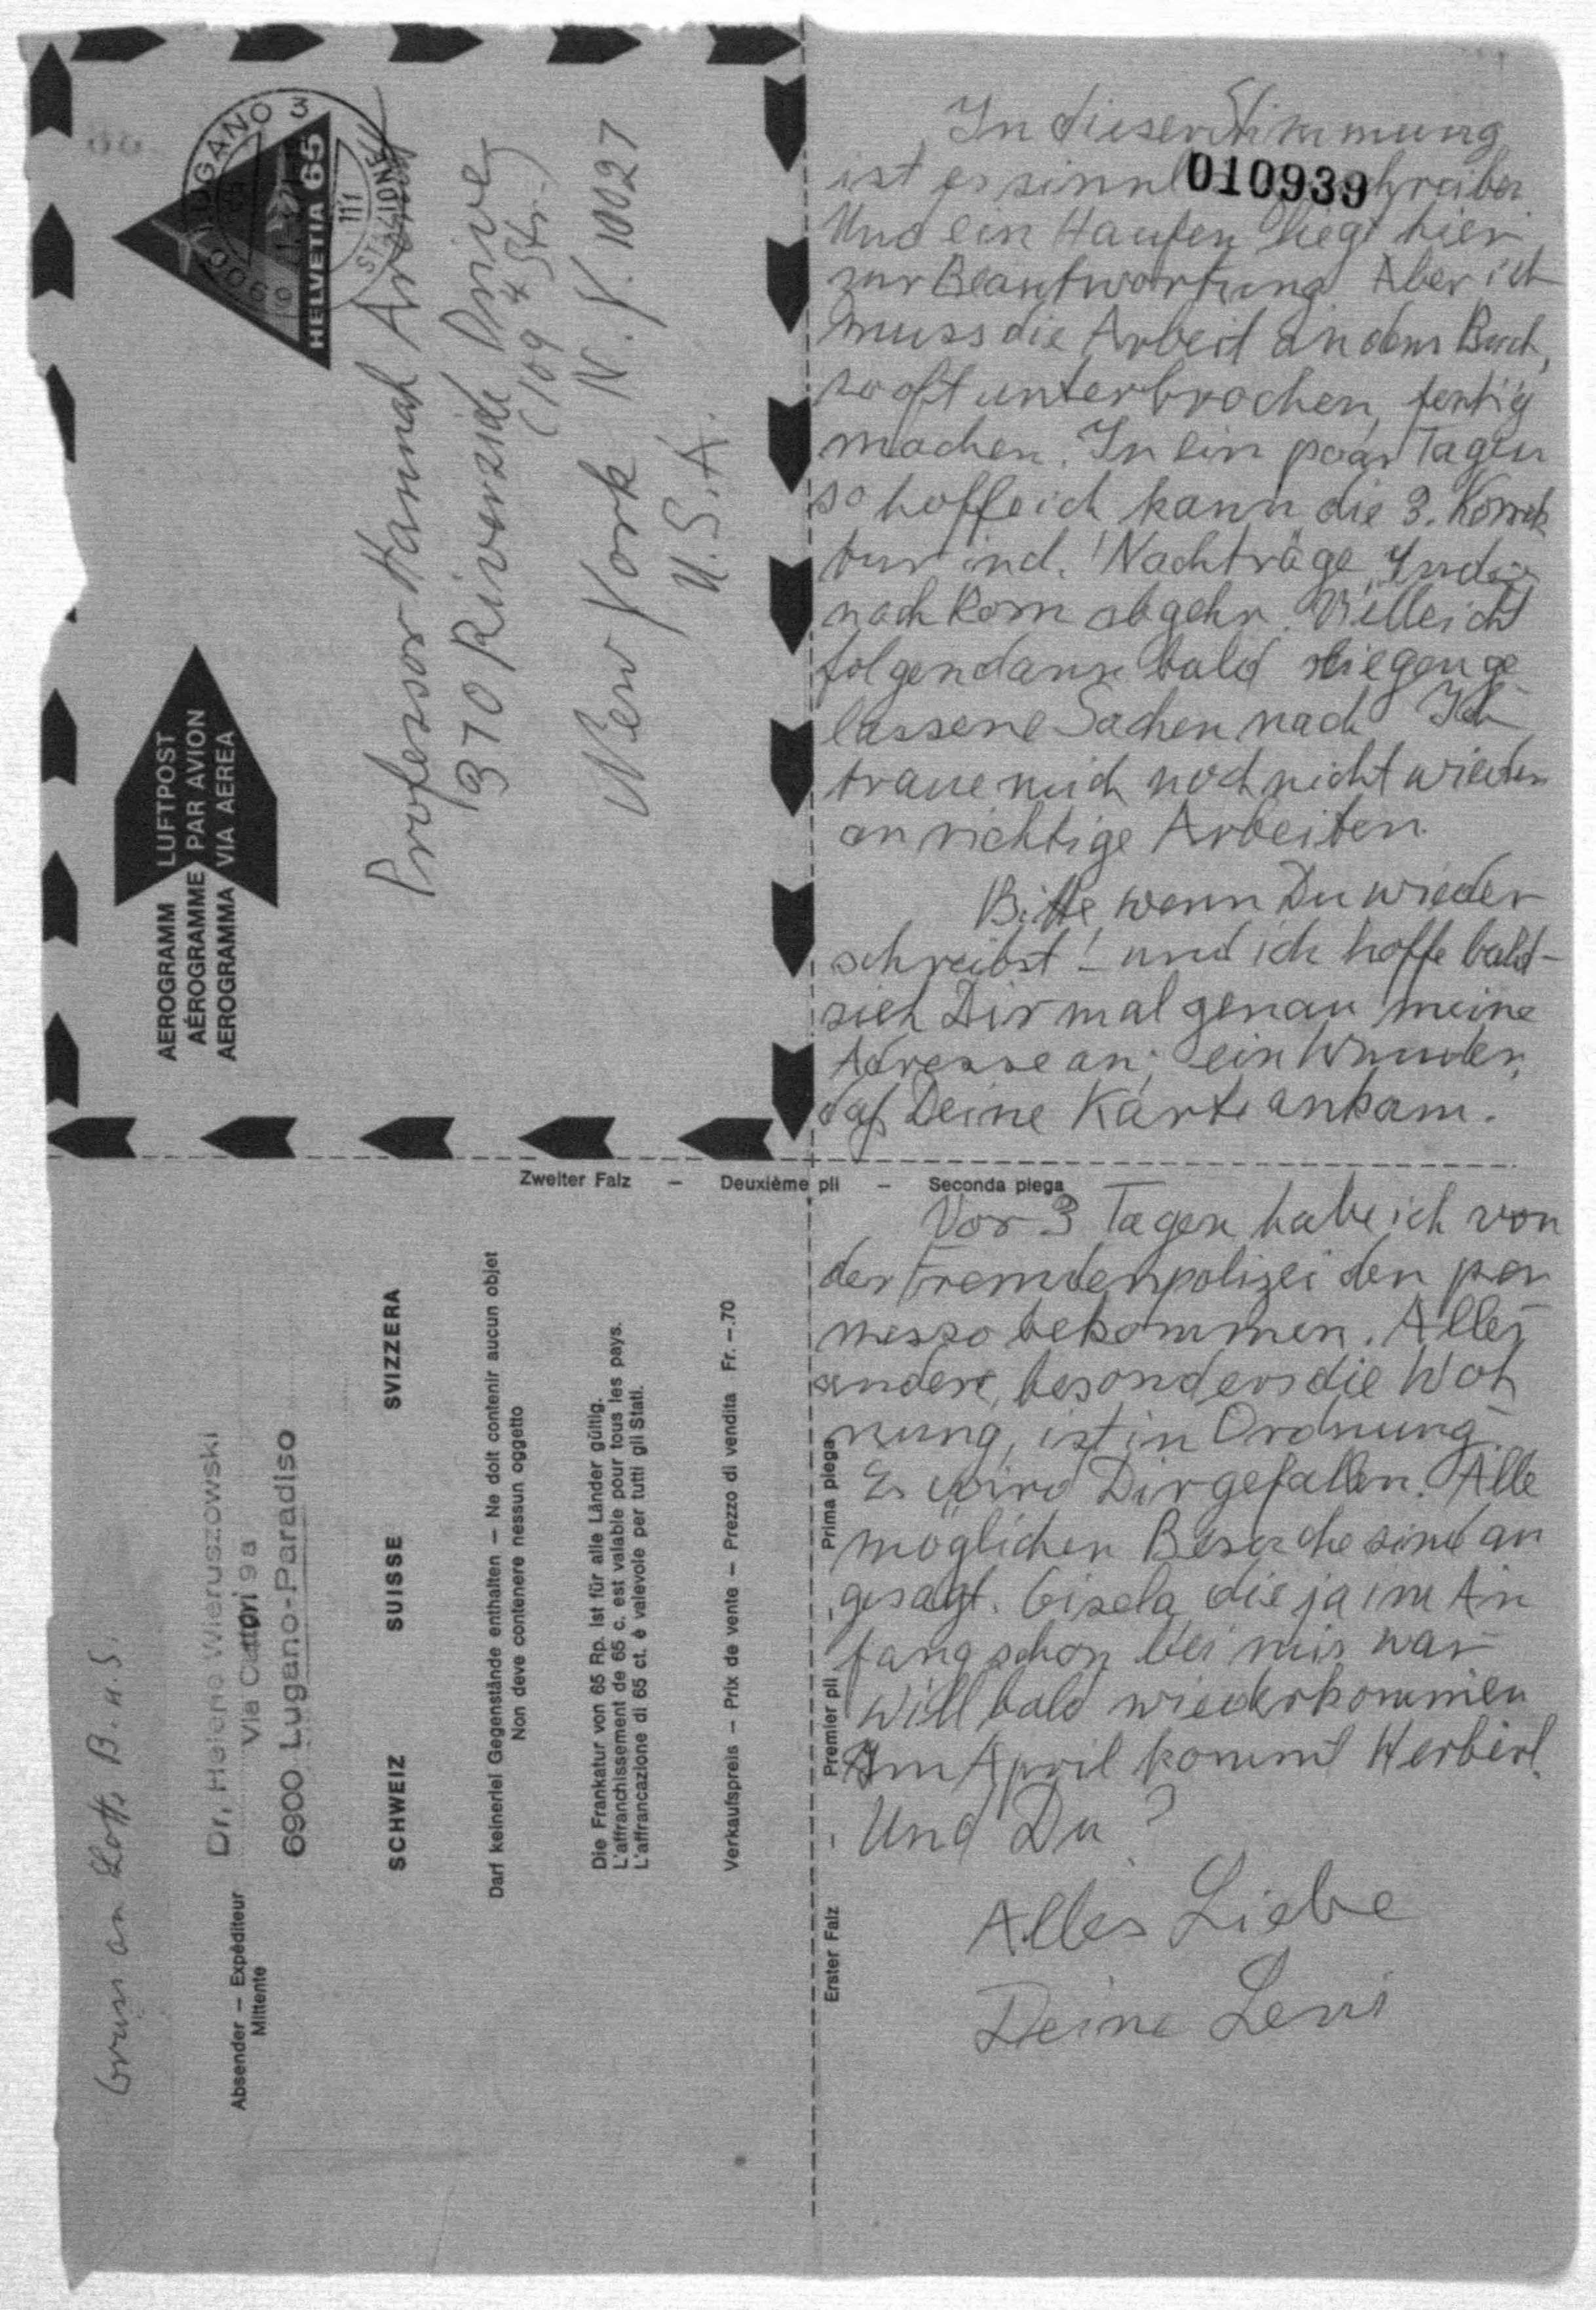 LUGANO 3
STAZIONE
6900
HELVETIA 65
LUFTPOST
PAR AVION
VIA AEREA
AEROGRAMM
AÉROGRAMME
AEROGRAMMA
Professor Hannah Arendt
370 Riverside Drive
(109 Str.)
New York N.Y. 10027
U.S.A.
In dieser Stimmung
010939
ist es sinnl schreiben
Und ein Haufen liegt hier
zur Beantwortung Aber ich
muss die Arbeit an dem Buch,
so oft unterbrochen, fertig
machen. In ein paar Tagen
so hoffe ich kann die 3. Korrek
tur incl. Nachträge, Index
nach Rom abgehn. Vielleicht
folgen dann bald liegen ge
lassene Sachen nach Ich
traue mich noch nicht wieder
an richtige Arbeiten.
Bitte, wenn Du wieder
schreibst! – und ich hoffe bald –
sieh Dir mal genau meine
Adresse an; ein Wunder,
daß Deine Karte ankam.
Zweiter Falz – Deuxième pli – Seconda piega
Vor 3 Tagen habe ich von
der Fremdenpolizei den per
messo bekommen. Alles
andere, besonders die Woh
nung, ist in Ordnung.
Es wird Dir gefallen. Alle
möglichen Besuche sind an
gesagt. Gisela die ja im An
fang schon bei mir war
will bald wiederkommen
Im April kommt Herbert.
Und Du?
Alles Liebe
Deine Leni
Erster Falz Premier pli Prima piega
Gruss an Lotte B. u. S.
Absender – Expéditeur
Mittente
Dr. Helene Wieruszowski
Via Cattori 9a
6900 Lugano-Paradiso
SCHWEIZ SUISSE SVIZZERA
Darf keinerlei Gegenstände enthalten – Ne doit contenir aucun objet
Non deve contenere nessun oggetto
Die Frankatur von 65 Rp. ist für alle Länder gültig.
L'affranchissement de 65 c. est valable pour tous les pays.
L'affrancazione di 65 ct. è valevole per tutti gli Stati.
Verkaufspreis – Prix de vente – Prezzo di vendita Fr. –.70